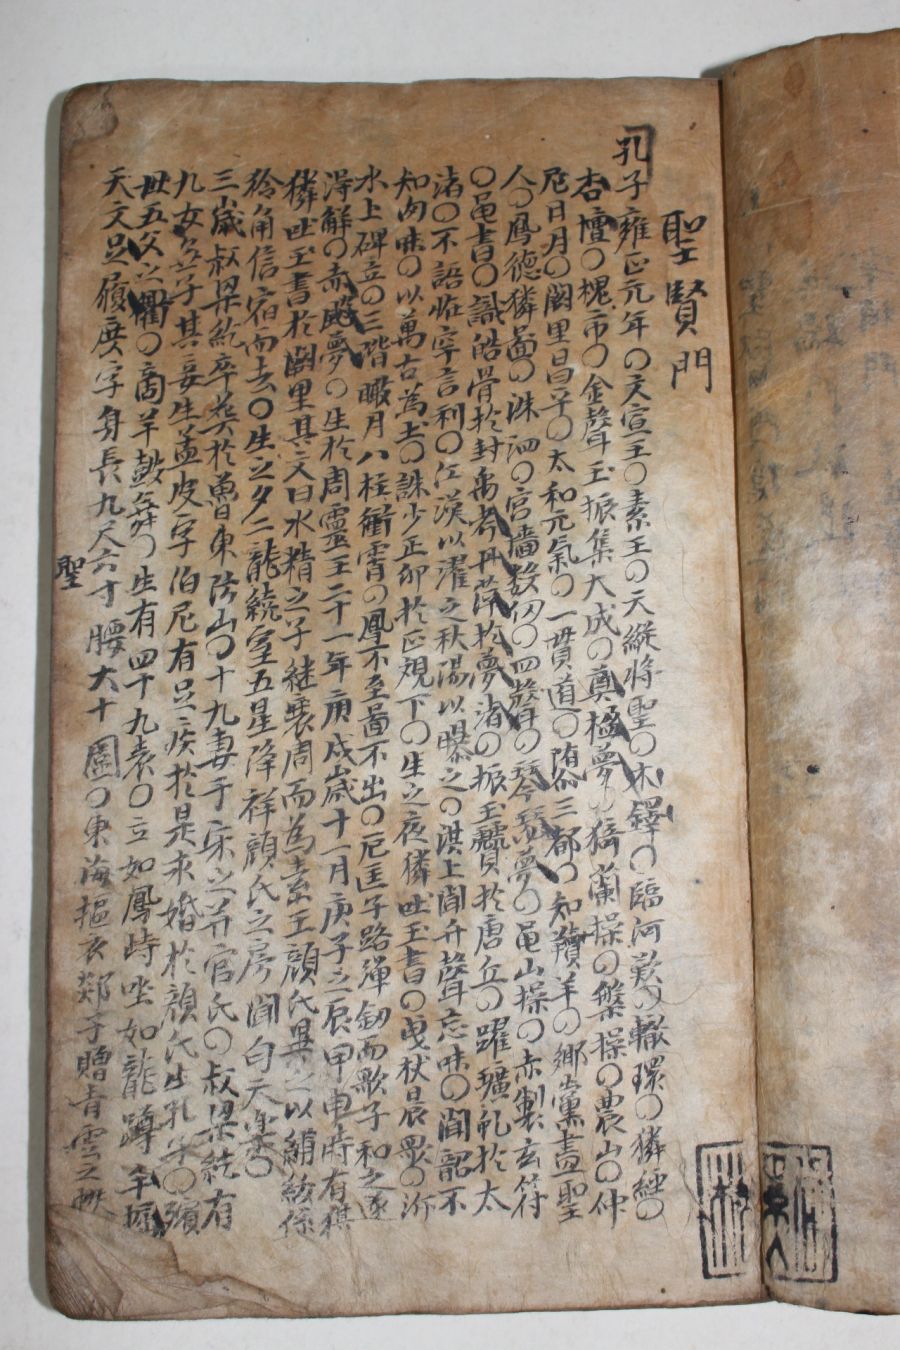 聖賢門
孔子雍正元年○文宣王○素王○天縱將聖○木鐸○臨河歎○轍環○獜經○
杏壇○槐市○金聲玉振集大成○奠楹夢○猗蘭操○槃操○農山○仲
尼日月○闕里○太和元氣○一貫道○墮三都○知羵羊○鄕黨畫聖
人○鳳德獜啚○洙泗○宮墻數仞○四教○琴夢○黽山操○赤制玄符
○黽書○識皓骨於封禺者丹萍於夢渚○振玉於唐丘○躍於太
渚○不語怪罕言利○江漢以濯之秋陽以曝之○淇上聞弁聲忘味○聞韶不
知肉味○以萬古爲土○誅少正卯於正規下○生之夜獜吐玉書○曳杖晨㱔○泝
水上碑立○三階㬉月八柱衝霄○鳳不至啚不出○厄匡子路彈釰而歌子和之遂
得解○赤飈夢○生於周靈王二十一年庚戌歲十一月庚子之辰甲申時有祺
獜吐玉書於闕里其文曰水精之子継衰周而爲素王顔氏異之以綉紱係
獜角信宿而去○生之夕二龍繞室五星降祥顔氏之房聞匀天樂○
三歲叔梁紇卒葬於魯東防山○十九妻于宋之幵官氏○叔梁紇有
九女無子其妾生孟皮字伯尼有足疾於是求婚於顔氏生孔子○殯
母五父之衢○商羊鼓舞○生有四十九表○立如鳳峙坐如龍蹲手握
天文足履度字身長九尺六寸腰大十圍○東海摳衣郯子贈青雲之
聖